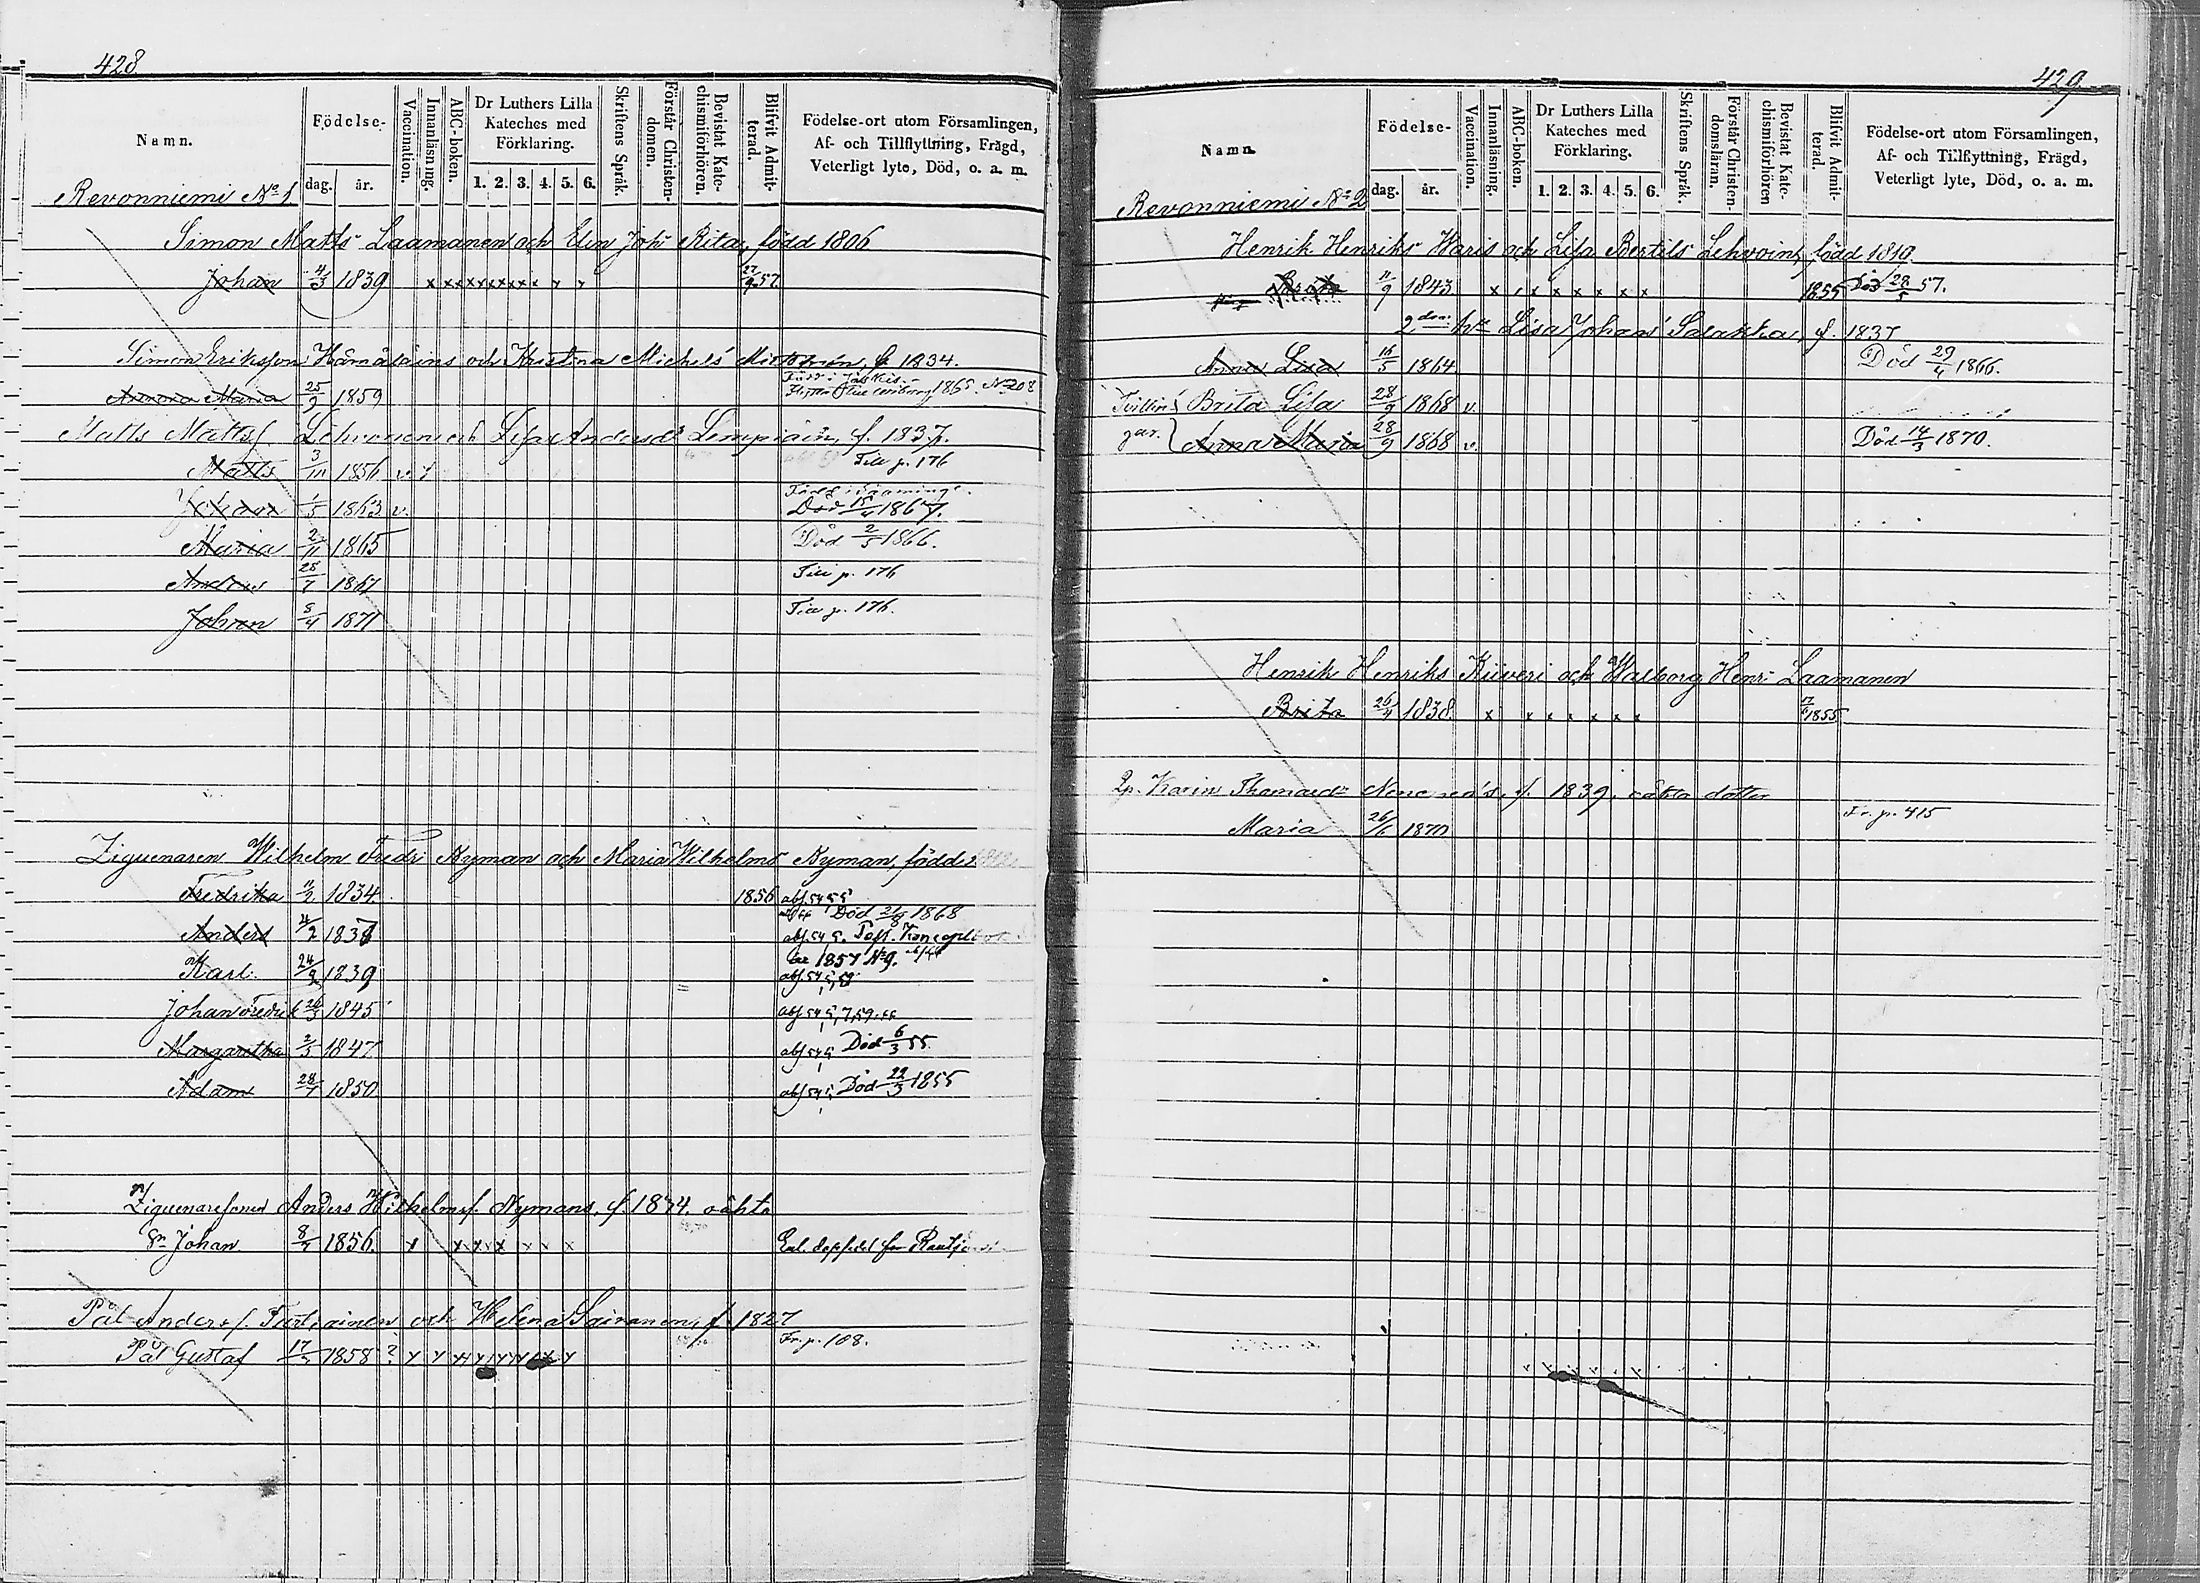 428
Namn.
Födelse-
dag. år.
Vaccination.
Innanläsning.
ABC-boken.
Dr Luthers Lilla
Kateches med
Förklaring.
1. 2. 3. 4. 5. 6.
Skriftens Språk.
Förstår Christen-
domen.
Bevistat Kate-
chismiförhören.
Blifvit Admit-
terad.
Födelse-ort utom Församlingen,
Af- och Tillflyttning, Frägd,
Veterligt lyte, Död, o. a. m.
Revonniemi No 1
Simon Matts Laamanen och Elin Joh Rita, född 1806
Johan 4/3 1839 x x x x x x x x x x x 27/9 57.
Simon Eriksson Hämäläins och Kristina Michels f. 1834.
Född i Jääskis.
Maria 25/9 1859 1865. No 208
Matts Mattsf. Lehvonen och Lisa Andersdr Lempiäin, f. 1837.
Matts 3/11 1856 v. Till p. 176
Johan 1/5 1863 v. Död 15/ 1867.
Maria 2/11 1865 Död 2/5 1866.
Anders 25/7 1867 Till p. 176
Johan 8/4 1871 Till p. 176.
Ziguenaren Wilhelm Fredr Nyman och Maria Wilhelms Nyman, född
Fredrika 11/2 1834 1856 abs. 54, 55
Död 21/8 1868
Anders 4/2 1837 abs. 54, 5.
1857 No 9.
Karl. 24/9 1839 abs. 54
Johan Fredrik 26/3 1845 abs 54
Margaretha 2/3 1847 abs 54 Död 6/3 55.
Adam 28/4 1850 abs 54 Död 22/3 1855
Ziguenaresonen Anders Wilhelmsf. Nymans, f. 1834. oäkta
Sn Johan 8/ 1856. x x x x x x x
Pål Andersf. Turtiainen och Helena Sairanen, f. 1827
Pål Gustaf 17/ 1858 ? x x x x x x x x x Fr. p. 108.
429
Namn.
Födelse-
dag. år.
Vaccination.
Innanläsning.
ABC-boken.
Dr Luthers Lilla
Kateches med
Förklaring.
1. 2. 3. 4. 5. 6.
Skriftens Språk.
Förstår Christen-
domsläran.
Bevistat Kate-
chismiförhören
Blifvit Admit-
terad.
Födelse-ort utom Församlingen,
Af- och Tillflyttning, Frägd,
Veterligt lyte, Död, o. a. m.
Revonniemi No 2
Henrik Henriks Waris och Lisa Bertils Lehvoin, född 1810.
Brita 11/9 1843 x x x x x x x x 1855 Död 28/5 57.
2dra h. Lisa Johans Salakka, f. 1837
Anna Lisa 16/5 1864 Död 29/4 1866.
Tvillin- Brita Lisa 28/9 1868 v.
gar. Anna Maria 28/9 1868 v. Död 14/3 1870.
Henrik Henriks Kiiveri och Walborg Henr Laamanen
Brita 26/4 1838. x x x x x x x 17/6 1855
Karin Thomasdr f. 1839. oäkta dotter
Maria 26/6 1870 Fr. p. 415